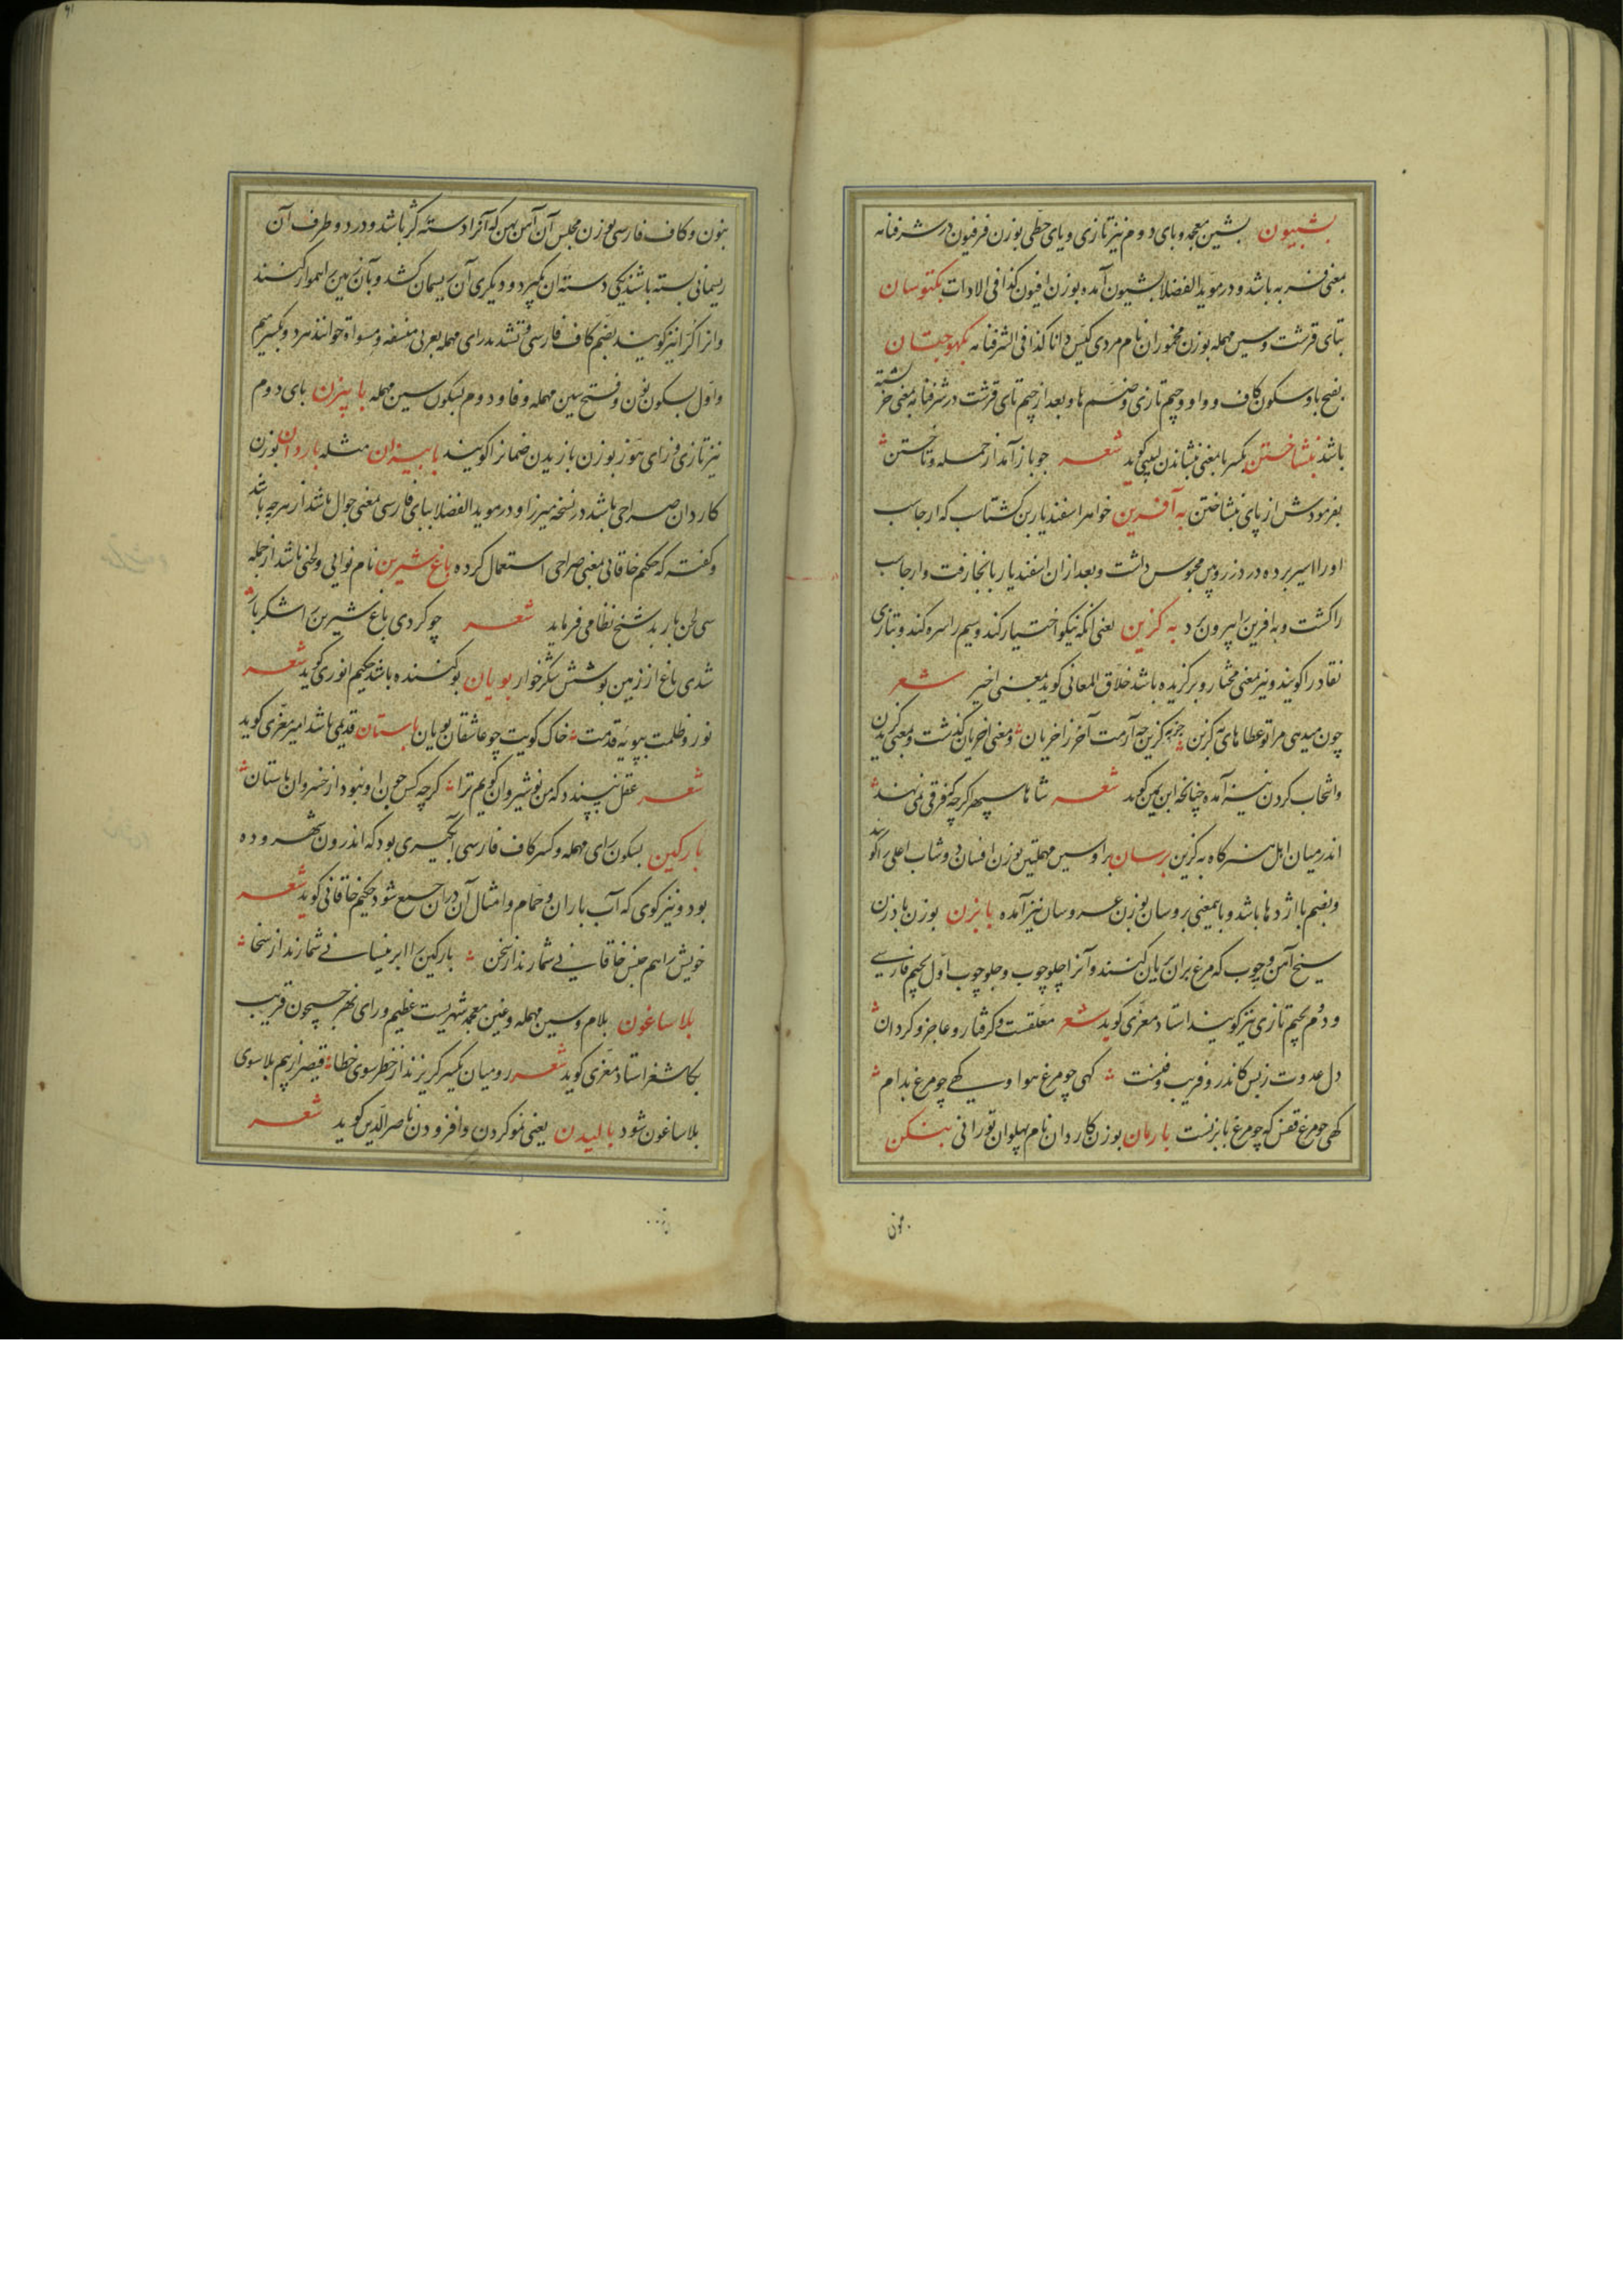 بشبیون بشین معجمه و بای دوم نیز تازی و یای حطی بوزن فرفیون در شرفنامه
بمعنی فربه باشد و در مؤید الفضلا بشیون آمده بوزن افیون کذا فی الادات بکتوسان
بتای قرشت و سین مهمله بوزن مخموران نام مردی کیس و دانا کذا فی الشرفنامه بکهوجتان
بفتح با و سکون کاف و واو و جیم تازی و ضم ها و بعد از جیم تای قرشت در شرفنامه بمعنی خر پشته
باشد بنشاختن بکسر با معنی بنشاندن لبیبی کوید شعر جو باز آمد از حمله و تاختن
بفرمودش از پای بنشاختن به آفرین خواهر اسفندیار بن کشتاسب که ارجاسب
او را اسیر برده در دز رویین محبوس داشت و بعد از ان اسفندیار بانجا رفت و ارجاسب
را کشت و به افرین را بیرون آورد به کزین یعنی انکه نیکو اختیار کند و سیم را سره کند و بتازی
نقاد را کویند و نیز معنی مختار و برکزیده باشد خلاق المعانی کوید بمعنی اخیر شعر
چون میدهی مرا تو عطاهای به کزین جز به کزین چه آرمت آخر ز اخریان و معنی اخریان کذشت و بمعنی کزیدن
و انتخاب کردن نیز آمده چنانچه ابن یمین کوید شعر شاها سپهر اکرچه که فرقی نمی نهد
اندر میان اهل هنر کاه به کزین برسان برا و سین مهملتین بوزن افسان دوشاب اعلی را کویند
و بضم با اژدها باشد و باینمعنی بروسان بوزن عروسان نیز آمده بابزن بوزن بادزن
سیخ آهن و چوب که مرغ بران بریان کنند و آنرا چلوچوب و جلوچوب اول بجیم فارسی
و دوم بجیم تازی نیز کویند استاد معزی کوید شعر معلقست و کرفتار و عاجز و کردان
دل عدوت ز بس کاندرو فریب و فنست کهی چو مرغ هوا و کهی چو مرغ بدام
کهی چو مرغ قفس که چو مرغ بابزنست بارمان بوزن کاردان نام پهلوان تورانی بنکن
بنون
بنون و کاف فارسی بوزن مجلس آن آهن پهن که آنرا دسته کثر باشد و در دو طرف آن
ریسمانی بسته باشند یکی دسته ان بکیرد و دیکری آن ریسمان کشد و بآن زمین را هموار کنند
و انرا کرا نیز کویند بضم کاف فارسی و تشدید رای مهمله بعربی منسفه و مسواة خوانند هر دو بکسر میم
و اول بسکون نون و فتح سین مهمله و فا و دوم بسکون سین مهمله بابیزن بای دوم
نیز تازی و زای هوز بوزن بازیدن ضمانرا کویند بابیزان مثله باردان بوزن
کاردان صراحی باشد در نسخه میرزا و در موید الفضلا ببای فارسی معنی جوال باشد از هرچه باشد
و کفته که حکیم خاقانی بمعنی صراحی استعمال کرده باغ شیرین نام نوایی و لحنی باشد از جمله
سی لحن باربد شیخ نظامی فرماید شعر چو کردی باغ شیرین را شکربار
شدی باغ از زمین بوشش شکرخوار بویان بو کننده باشد حکیم انوری کوید شعر
نور و ظلمت بپویه قدمت خاک کویت چو عاشقان بویان باستان قدیمی باشد امیر معزی کوید
شعر عقل نپسندد که من نوشیروان کویم ترا کرچه کس چون او نبود از خسروان باستان
بارکین بسکون رای مهمله و کسر کاف فارسی آبکیری بود که اندرون شهر و ده
بود و نیز کوی که آب باران و حمام و امثال آن دران جمع شود حکیم خاقانی کوید شعر
خویش را هم جنس خاقانی شمارند از سخن بارکین را ابر نیسانی شمارند از سخا
بلاساغون بلام و سین مهمله و غین معجمه شهریست عظیم ورای نهر جیحون قریب
بکاشغر استاد معزی کوید شعر رومیان یکسر کریزند از خطر سوی خطا قیصر از بیم بلا سوی
بلاساغون شود بالیدن یعنی نمو کردن و افزودن ناصر الدین کوید شعر